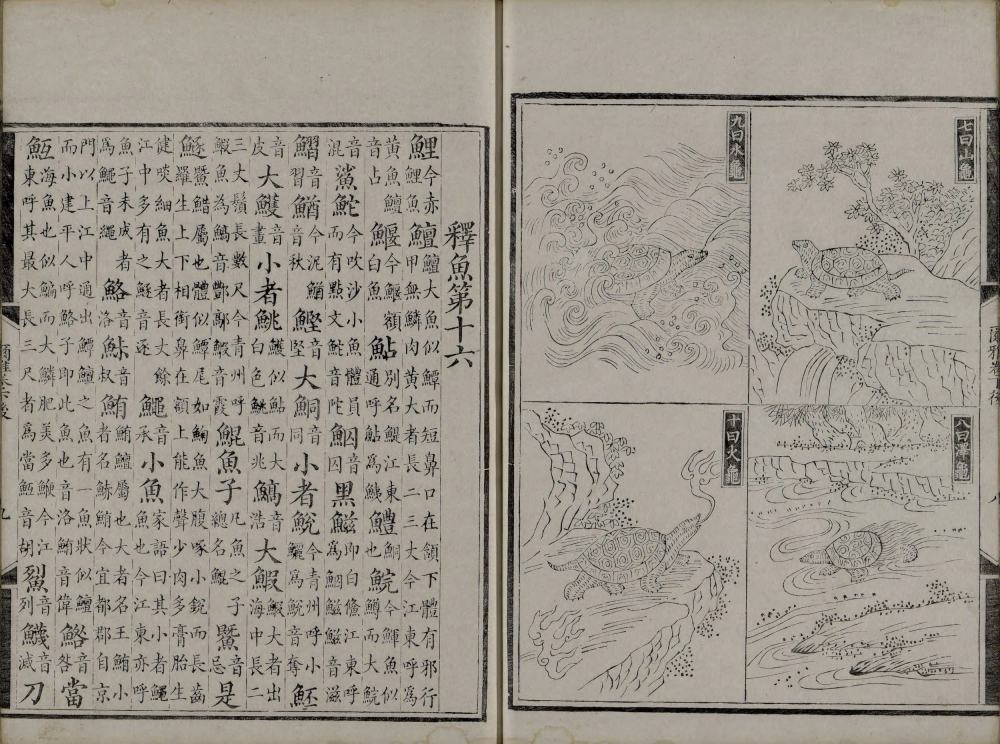 七曰山龜
八曰澤龜
九曰水龜
十曰火龜
釋魚第十六
鯉今赤鯉魚鱣鱣大魚似鱏而短鼻口在頷下體有邪行甲無鱗肉黃大者長二三丈今江東呼爲
黃魚鱣音占鰋今鰋額白魚鮎別名鯷江東通呼鮎爲鮧鱧鮦也鯇今鯶魚似鱒而大鯇音
混鯊鮀今吹沙小魚體員而有點文鮀音陀鮂音囚黑鰦即白鯈江東呼爲鮂鰦音滋
鰼音習鰌今泥鰌音秋鰹音堅大鮦音同小者鮵今青州呼小鱺爲鮵音奪魾
音皮大鱯音畫小者鮡鱯似鮎而大白色鮡音兆鰝音浩大鰕鰕大者出海中長二
三丈鬚長數尺今青州呼鰕魚爲鰝音酆鄗鰕音霞鯤魚子凡魚之子總名鯤鱀音忌是
鱁鱀䱜屬也體似鱏尾如䱡魚大腹喙小銳而長齒羅生上下相銜鼻在額上能作聲少肉多膏胎生
健啖細魚大者長丈餘江中多有之鱁音逐鱦音承小魚家語曰其小者鱦魚也今江東亦呼
魚子未成者爲鱦音繩鮥音洛鮛音叔鮪鮪鱣屬也大者名王鮪小者名鮛鮪今宜都郡自京
門以上江中通出鱏鱣之魚有一魚狀似鱣而小建平人呼鮥子即此魚也音洛鮪音偉鯦音咎當
魱海魚也似鯿而大鱗肥美多鯁今江東呼其最大長三尺者爲當魱音胡鮤音列鱴音滅刀
九